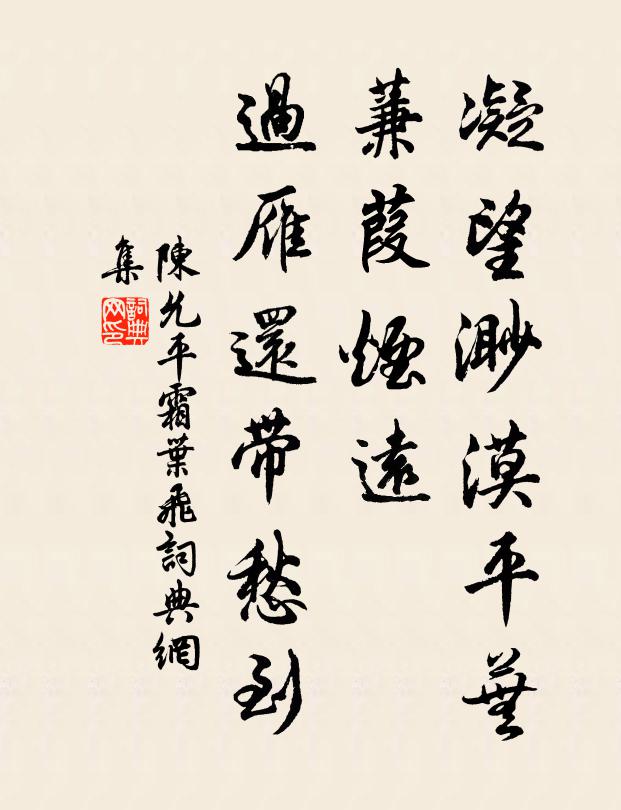 凝望渺漠平蕪
蒹葭煙遠
過雁還帶愁到
陳允平霜葉飛詞典網
集
詞典網印